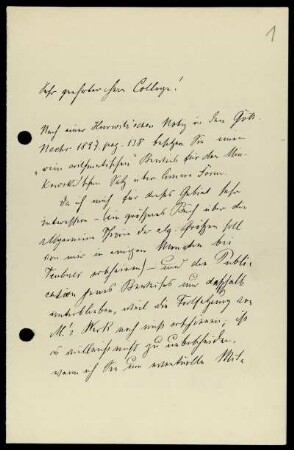 1
Sehr geehrter Herr College!
Nach einer Hurwitz'schen Notiz in den Gött.
Nachr. 1897 pag. besitzen Sie einen
"rein arithmetischen" Beweis für den Min-
kowski'schen Satz über lineare Form.
Da ich mich für dieses Gebiet sehr
interessire – ein grösseres Buch über die
allgemeine Theorie der alg. Grössen soll
von mir in einigen Monaten bei
Teubner erscheinen – und die Publi-
cation jenes Beweises nur deshalb
unterblieben, weil die Fortsetzung von
M's Werk noch nicht erschienen, ist
es vielleicht nicht zu unbescheiden,
wenn ich Sie um eventuelle Mit-